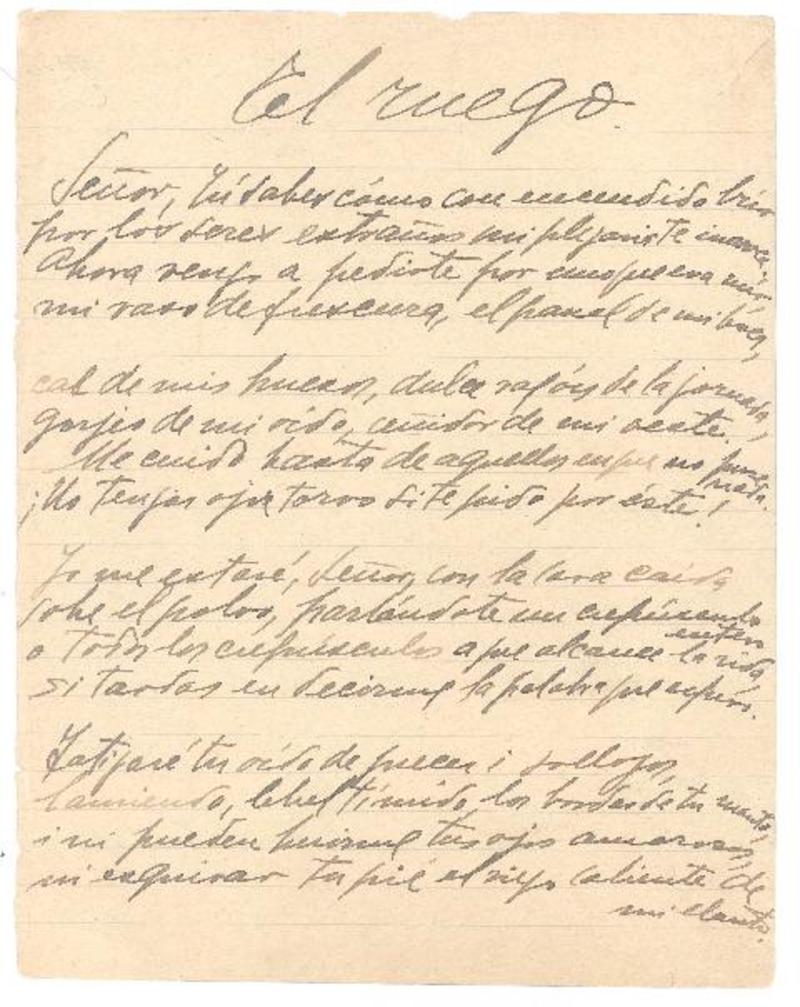 El ruego.
Señor, Tú sabes cómo con encendido brío
por los seres extraños mi plegaria te invoca.
Ahora vengo a pedirte por uno que era mío
mi vaso de frescura, el panal de mi boca,
cal de mis huesos, dulce razón de la jornada,
gorjeo de mi oído, ceñidor de mi veste.
Me cuido hasta de aquellos en que no puse
nada.
¡No tengas ojo torvo si te pido por éste!
Yo me estaré, Señor, con la cara caída
sobre el polvo, parlándote un crepúsculo
entero
o todos los crepúsculos a que alcance la vida
si tardas en decirme la palabra que espero.
Fatigaré tu oído de preces i sollozos,
lamiendo, lebrel tímido, los bordes de tu manto,
i ni pueden huirme tus ojos amorosos,
ni esquivar tu pié el riego caliente de
mi llanto.